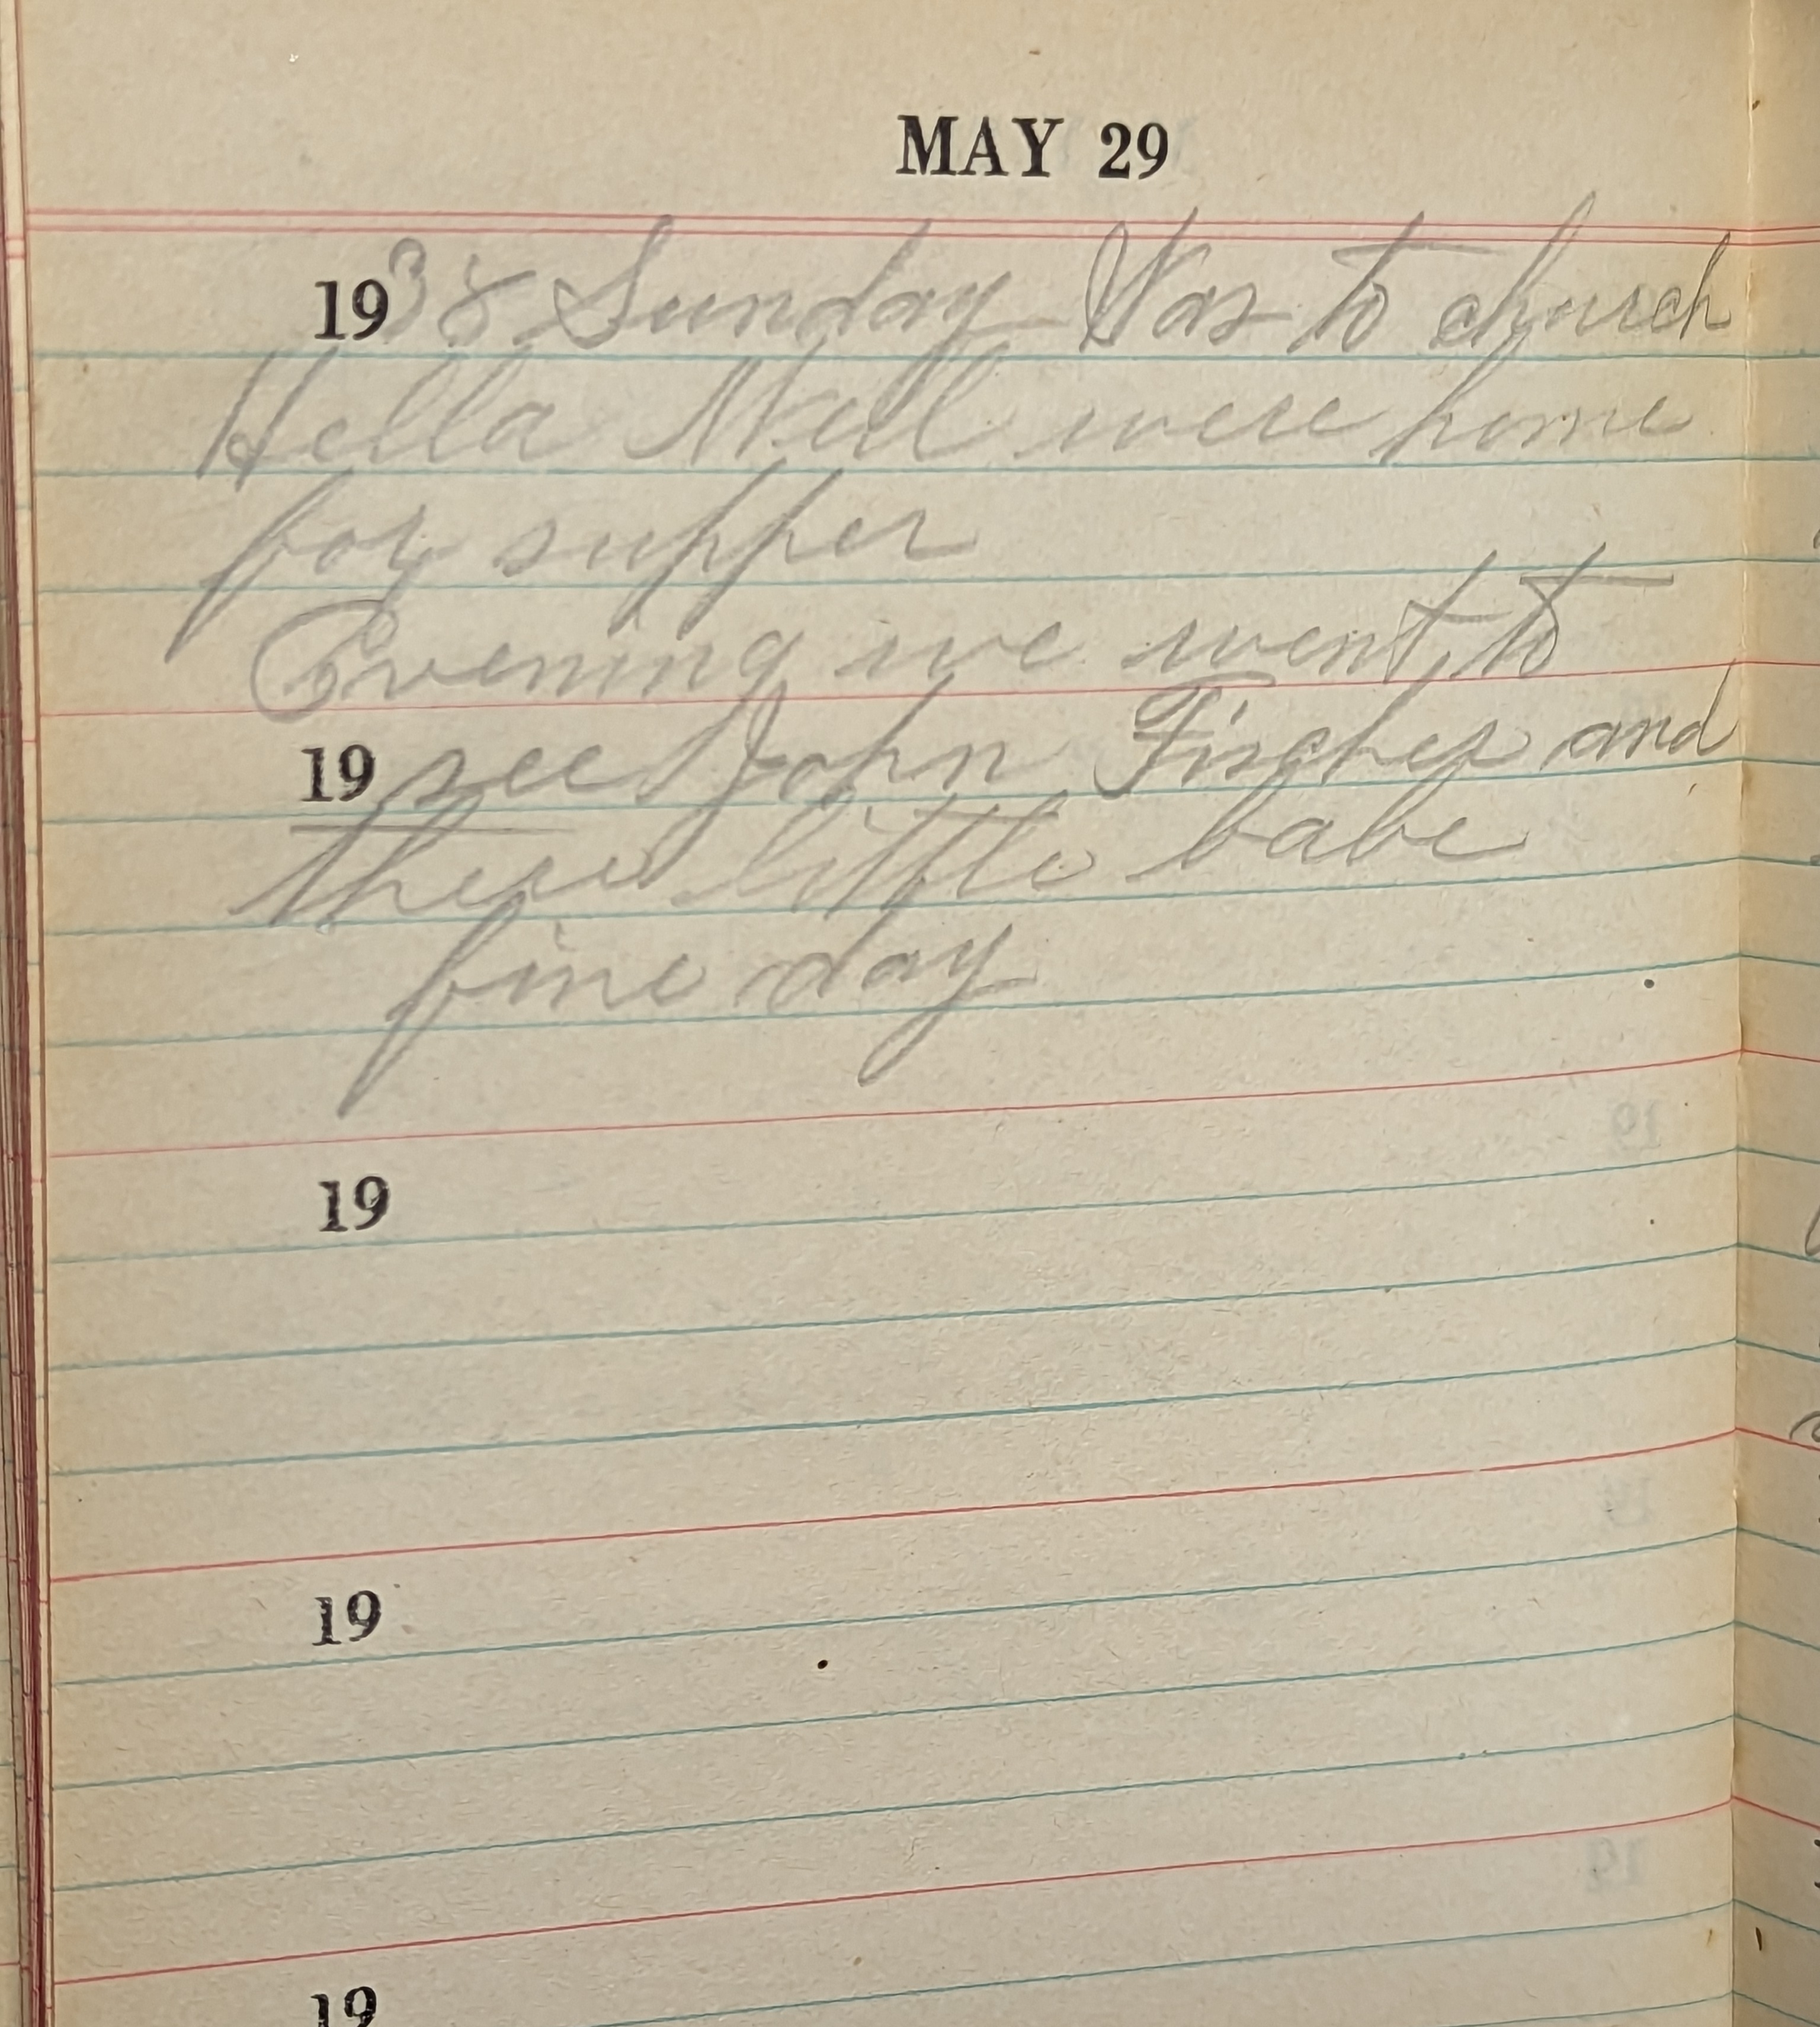 MAY 29
1938 Sunday Was to church
Hella Nell were home
for supper
Evening we went to
19 see John Fischer and
there little babe
fine day
19
19
19